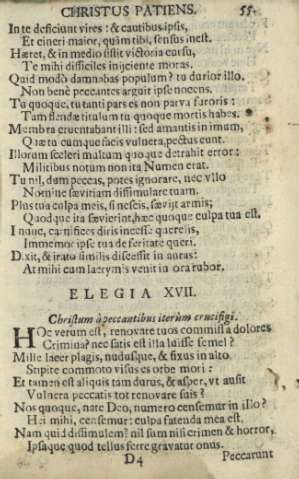 CHRISTUS PATIENS. 55.
In te deficiunt vires: & cautibus ipsis,
Et cineri maior, quàm tibi, sensus inest.
Hæret, & in medio sistit victoria cursu,
Te mihi difficiles iniiciente moras.
Quid modò damnabas populum? tu durior illo.
Non benè peccantes arguit ipse nocens.
Tu quoque, tu tanti pars es non parva furoris:
Tam flendæ titulum tu quoque mortis habes.
Membra cruentabant illi: sed amantis in imum,
Quæ tu cumque facis vulnera, pectus eunt.
Illorum sceleri multum quoque detrahit error:
Militibus notum non ita Numen erat.
Tu nil, dum peccas, potes ignorare, nec vllo
Nomine sævitiam dissimulare tuam.
Plus tua culpa meis, si nescis, sævijt armis;
Quod que ita sævierint, hæc quoque culpa tua est.
I nunc, carnifices diris incesse querelis,
Immemor ipse tua de feritate queri.
Dixit, & irato similis discessit in auras:
At mihi cum lacrymis venit in ora rubor.
ELEGIA XVII.
Christum à peccantibus iterùm crucifigi.
HOc verum est, renovare tuos commissa dolores
Crimina? nec satis est illa luisse semel?
Mille lacer plagis, nudusque, & fixus in alto
Stipite commoto visus es orbe mori:
Et tamen est aliquis tam durus, & asper, vt ausit
Vulnera peccatis tot renovare suis?
Nos quoque, nate Deo, numero censemur in illo?
Hei mihi, censemur: culpa fatenda mea est.
Nam quid dissimulem? nil sum nisi crimen & horror,
Ipsaque quod tellus ferre gravatur onus.
D4 Peccarunt